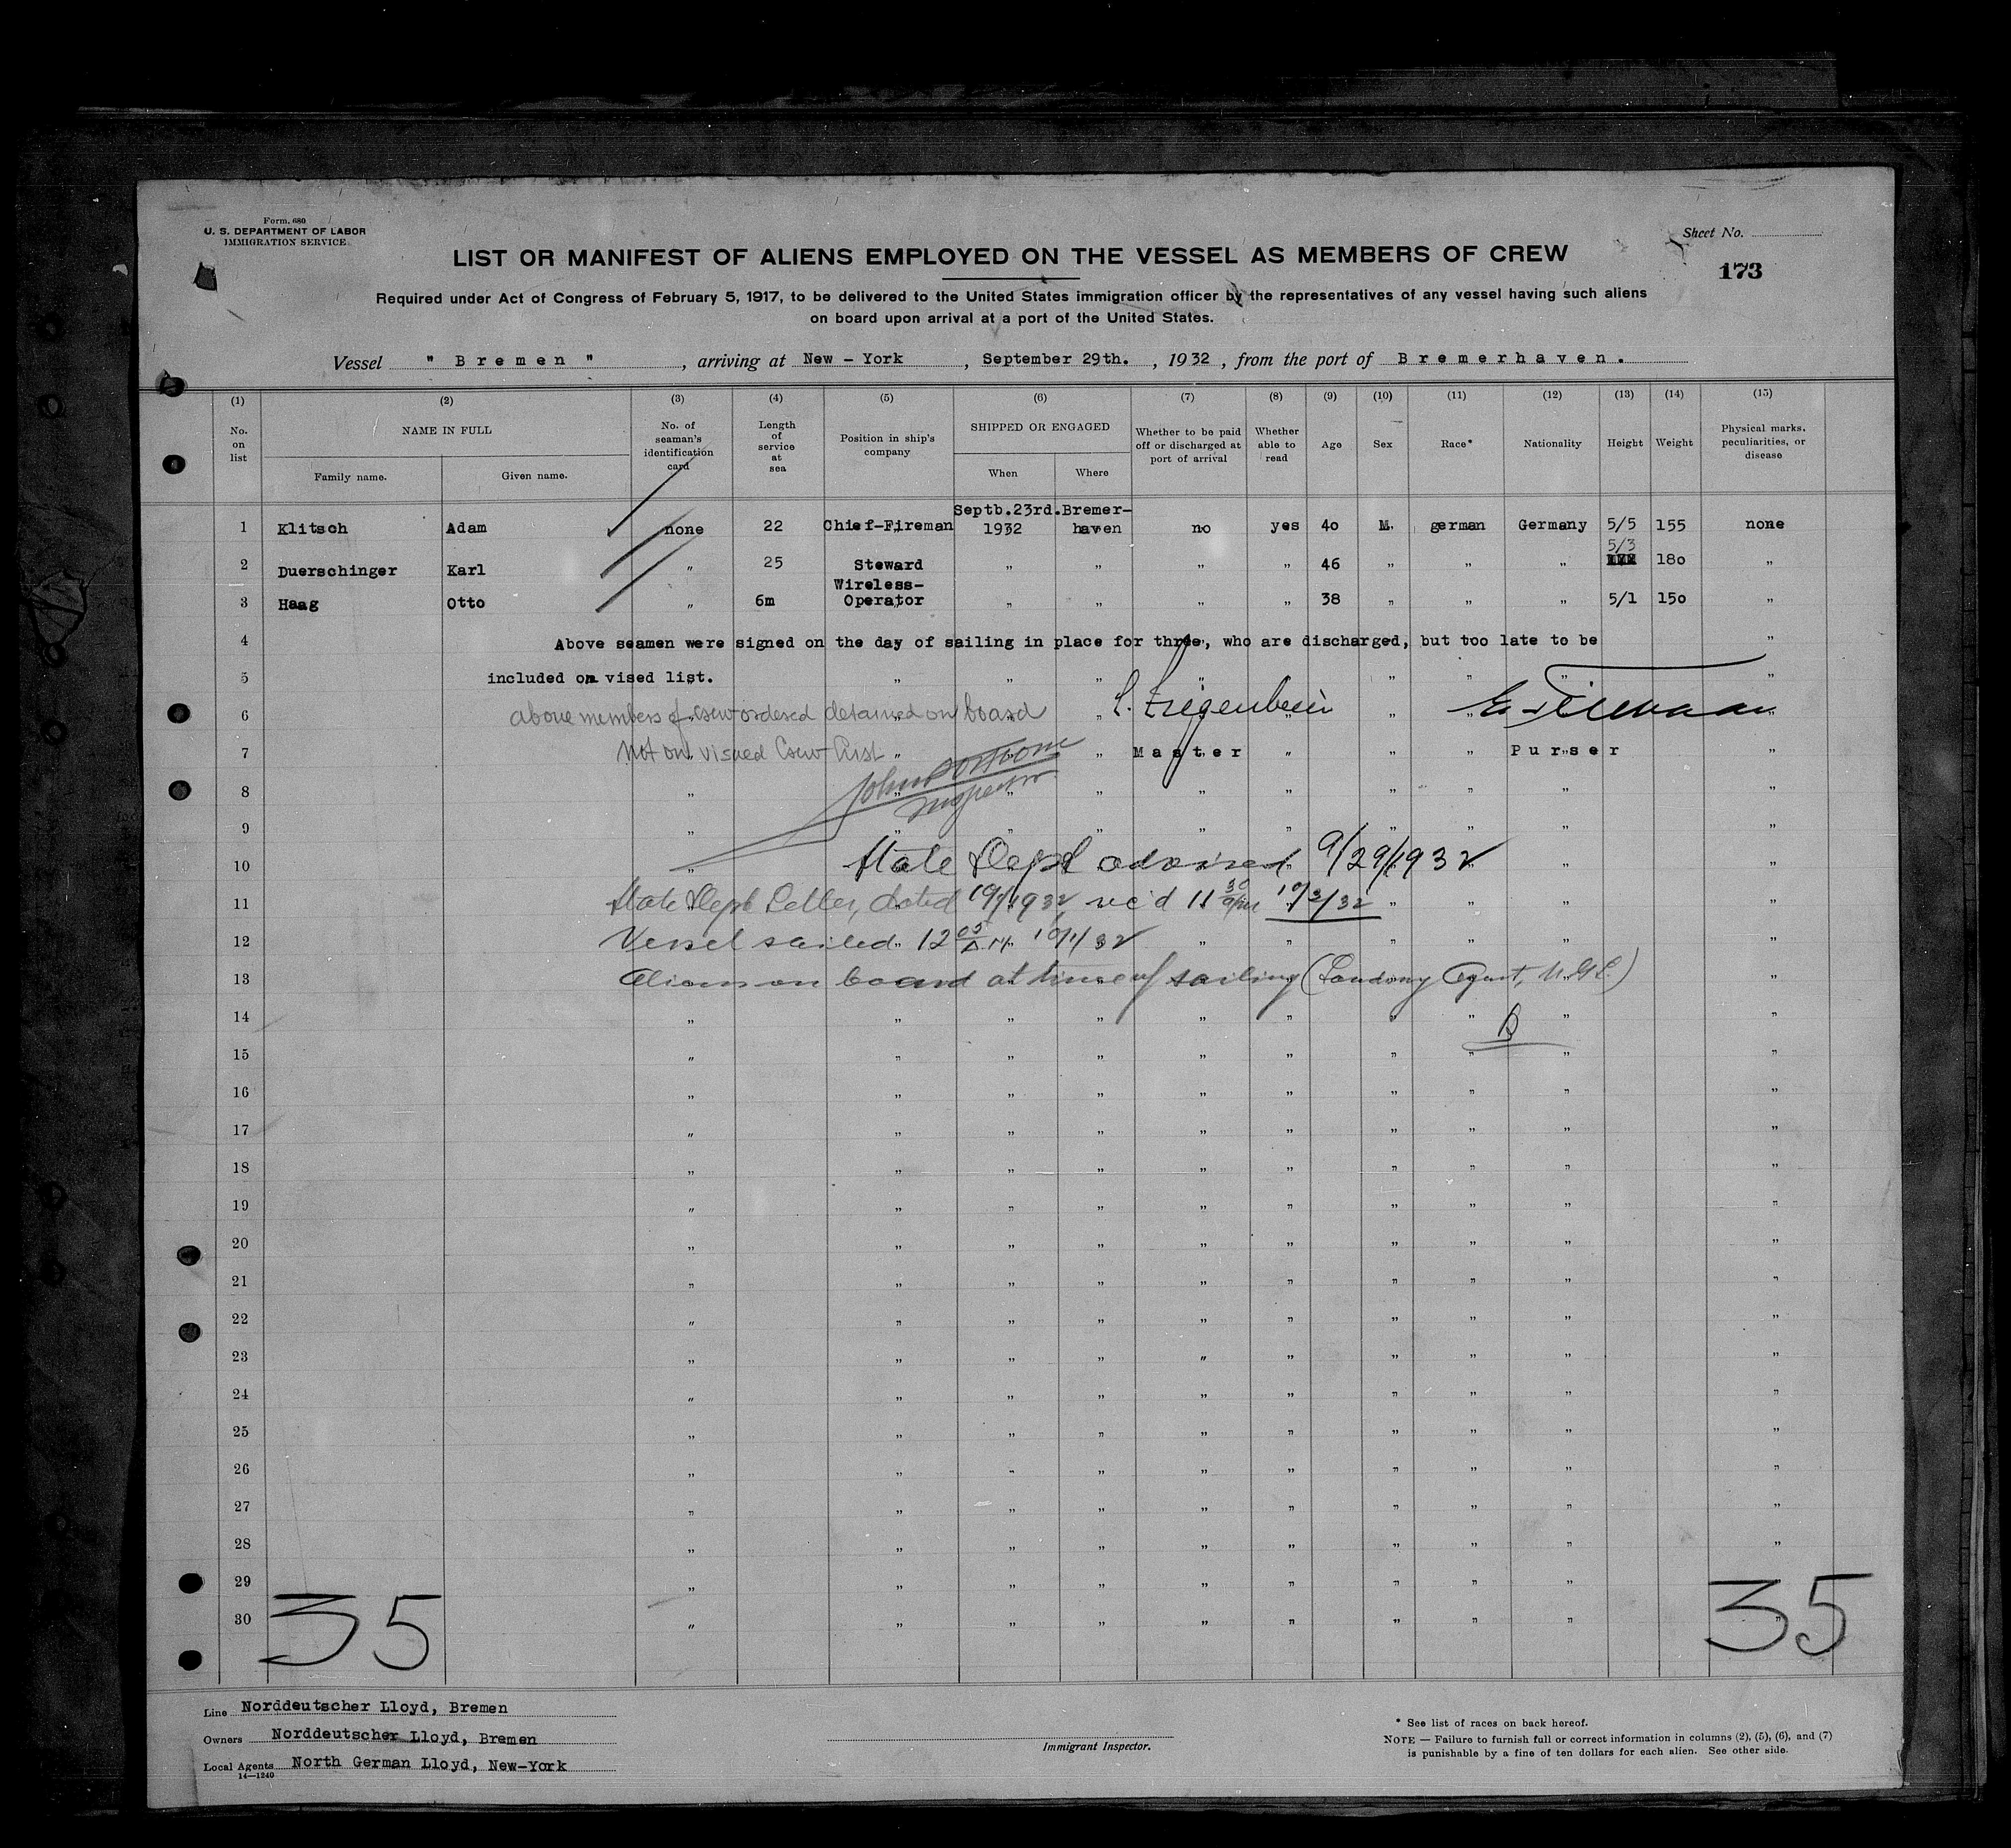 Form. 680
U. S. DEPARTMENT OF LABOR
IMMIGRATION SERVICE
Sheet No.
173
LIST OR MANIFEST OF ALIENS EMPLOYED ON THE VESSEL AS MEMBERS OF CREW
Required under Act of Congress of February 5, 1917, to be delivered to the United States immigration officer by the representatives of any vessel having such aliens
on board upon arrival at a port of the United States.
Vessel " Bremen " , arriving at New - York , September 29th. , 1932 , from the port of Bremerhaven.
(1) (2) (3) (4) (5) (6) (7) (8) (9) (10) (11) (12) (13) (14) (15)
No. on list NAME IN FULL Family name. Given name. No. of seaman's identification card Length of service at sea Position in ship's company SHIPPED OR ENGAGED When Where Whether to be paid off or discharged at port of arrival Whether able to read Age Sex Race* Nationality Height Weight Physical marks, peculiarities, or disease
1 Klitsch Adam none 22 Chief-Fireman Septb.23rd. 1932 Bremer-haven no yes 40 M. german Germany 5/5 155 none
2 Duerschinger Karl " 25 Steward " " " " 46 " " " 5/3 180 "
3 Haag Otto " 6m Wireless-Operator " " " " 38 " " " 5/1 150 "
4 Above seamen were signed on the day of sailing in place for three, who are discharged, but too late to be
5 included on vised list.
6 above members of crew ordered detained on board
7 not on visaed Crew list Master Purser
8 Inspector
9
10 State Dept advised 9/29/1932
11 State Dept Letter, dated 10/1/1932, rec'd 11 30 a/m 10/3/32
12 Vessel sailed 12 05 A.M. 10/1/32
13 Aliens on board at time of sailing (
14
15
16
17
18
19
20
21
22
23
24
25
26
27
28
29
30
35 35
Line Norddeutscher Lloyd, Bremen
Owners Norddeutscher Lloyd, Bremen
Local Agents North German Lloyd, New-York
14—1240
Immigrant Inspector.
* See list of races on back hereof.
NOTE — Failure to furnish full or correct information in columns (2), (5), (6), and (7)
is punishable by a fine of ten dollars for each alien. See other side.